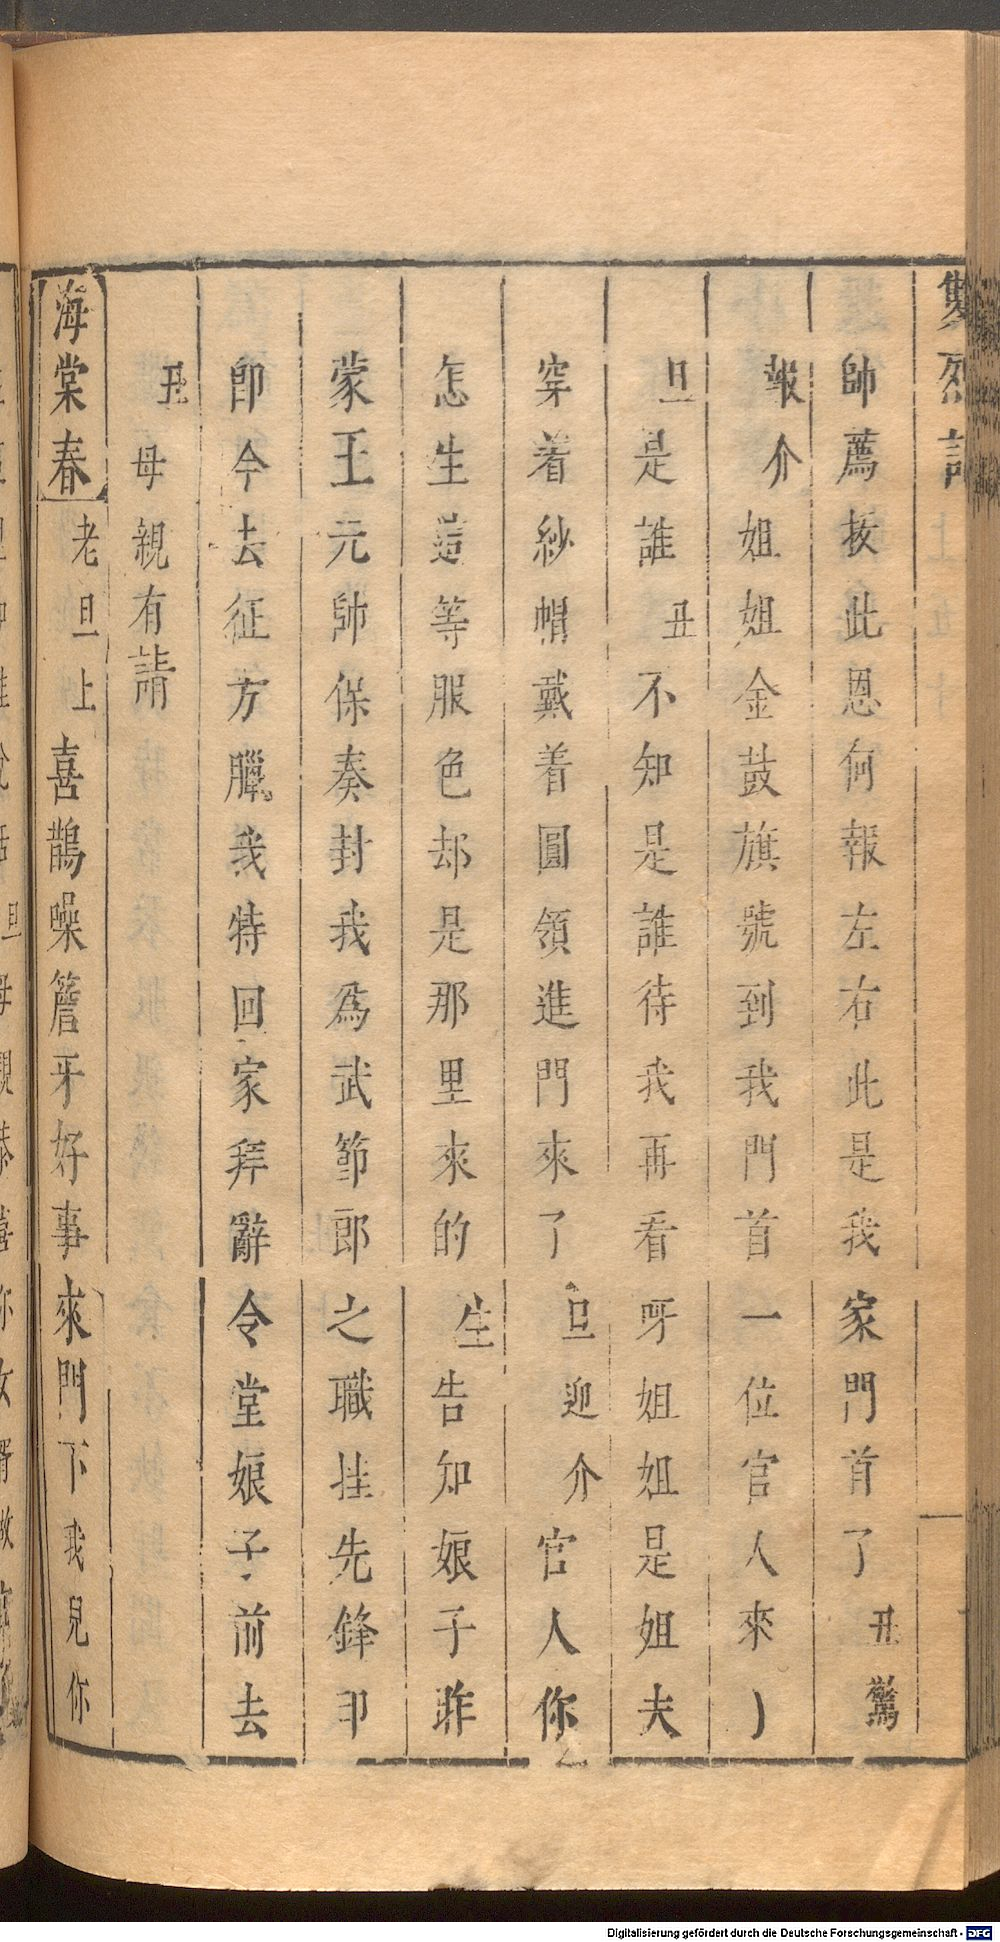 雙烈記
帥薦抜此恩何報左右此是我家門首了丑驚
報介姐姐金鼓旗號到我門首一位官人來
旦是誰丑不知是誰待我再看呀姐姐是姐夫
穿着紗帽戴着圓領進門來了旦迎介官人你
怎生這等服色却是那里來的生告知娘子昨
蒙王元帥保奏封我爲武節郎之職挂先鋒印
即今去征方臘我特回家拜辭令堂娘子前去
丑母親有請
海棠春老旦上喜鵲噪簷牙好事來門下我見你
Digitalisierung gefördert durch die Deutsche Forschungsgemeinschaft - DFG